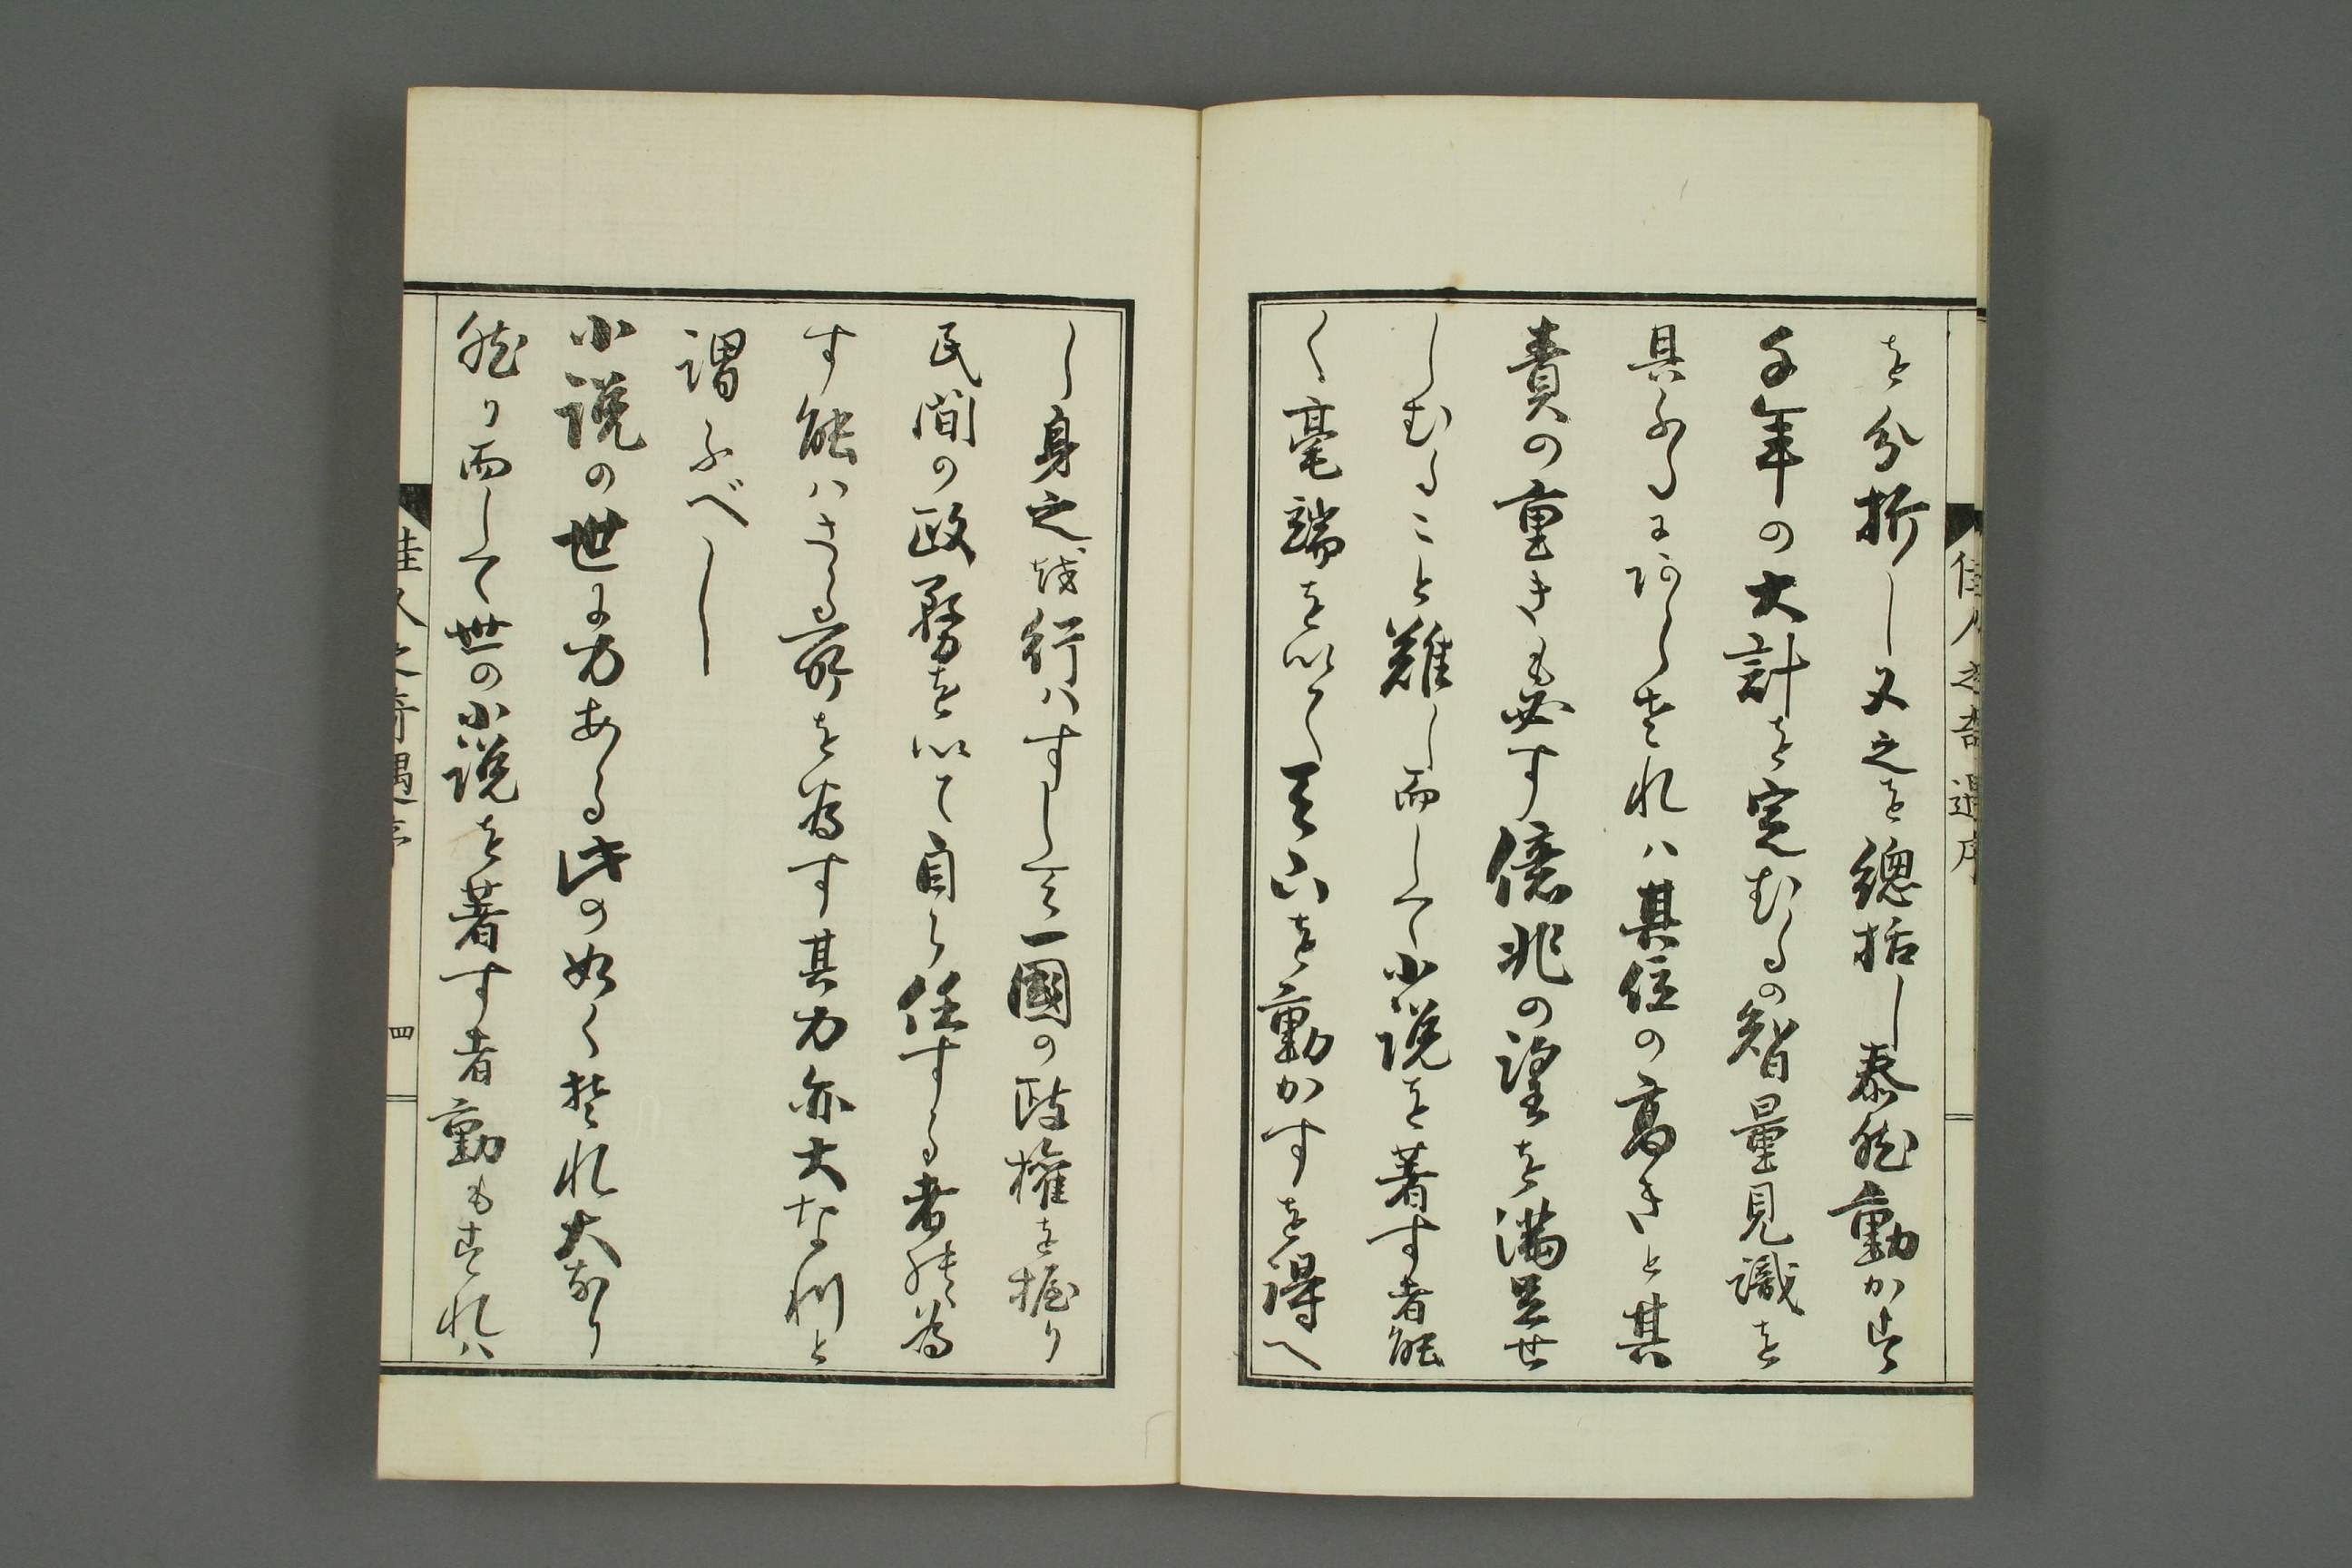 を分析し又之を總括し泰然動かす
千年の大計を定むるの智量見識を
具ふるにあらされハ其位の高きと其
責の重きも必す億兆の望を満足せ
しむること難し而して小説を著す者能
く毫端を以て天下を動かすを得へ
し身之越行ハすして一國の政權を握り
民間の政務を以て自ら任する者能為
す能ハさる所を為す其力亦大な利と
謂ふべし
小説の世に力ある此の如くそれ大なり
然り而して世の小説を著す者動もすれハ
佳人之奇遇序
佳人之奇遇序 四